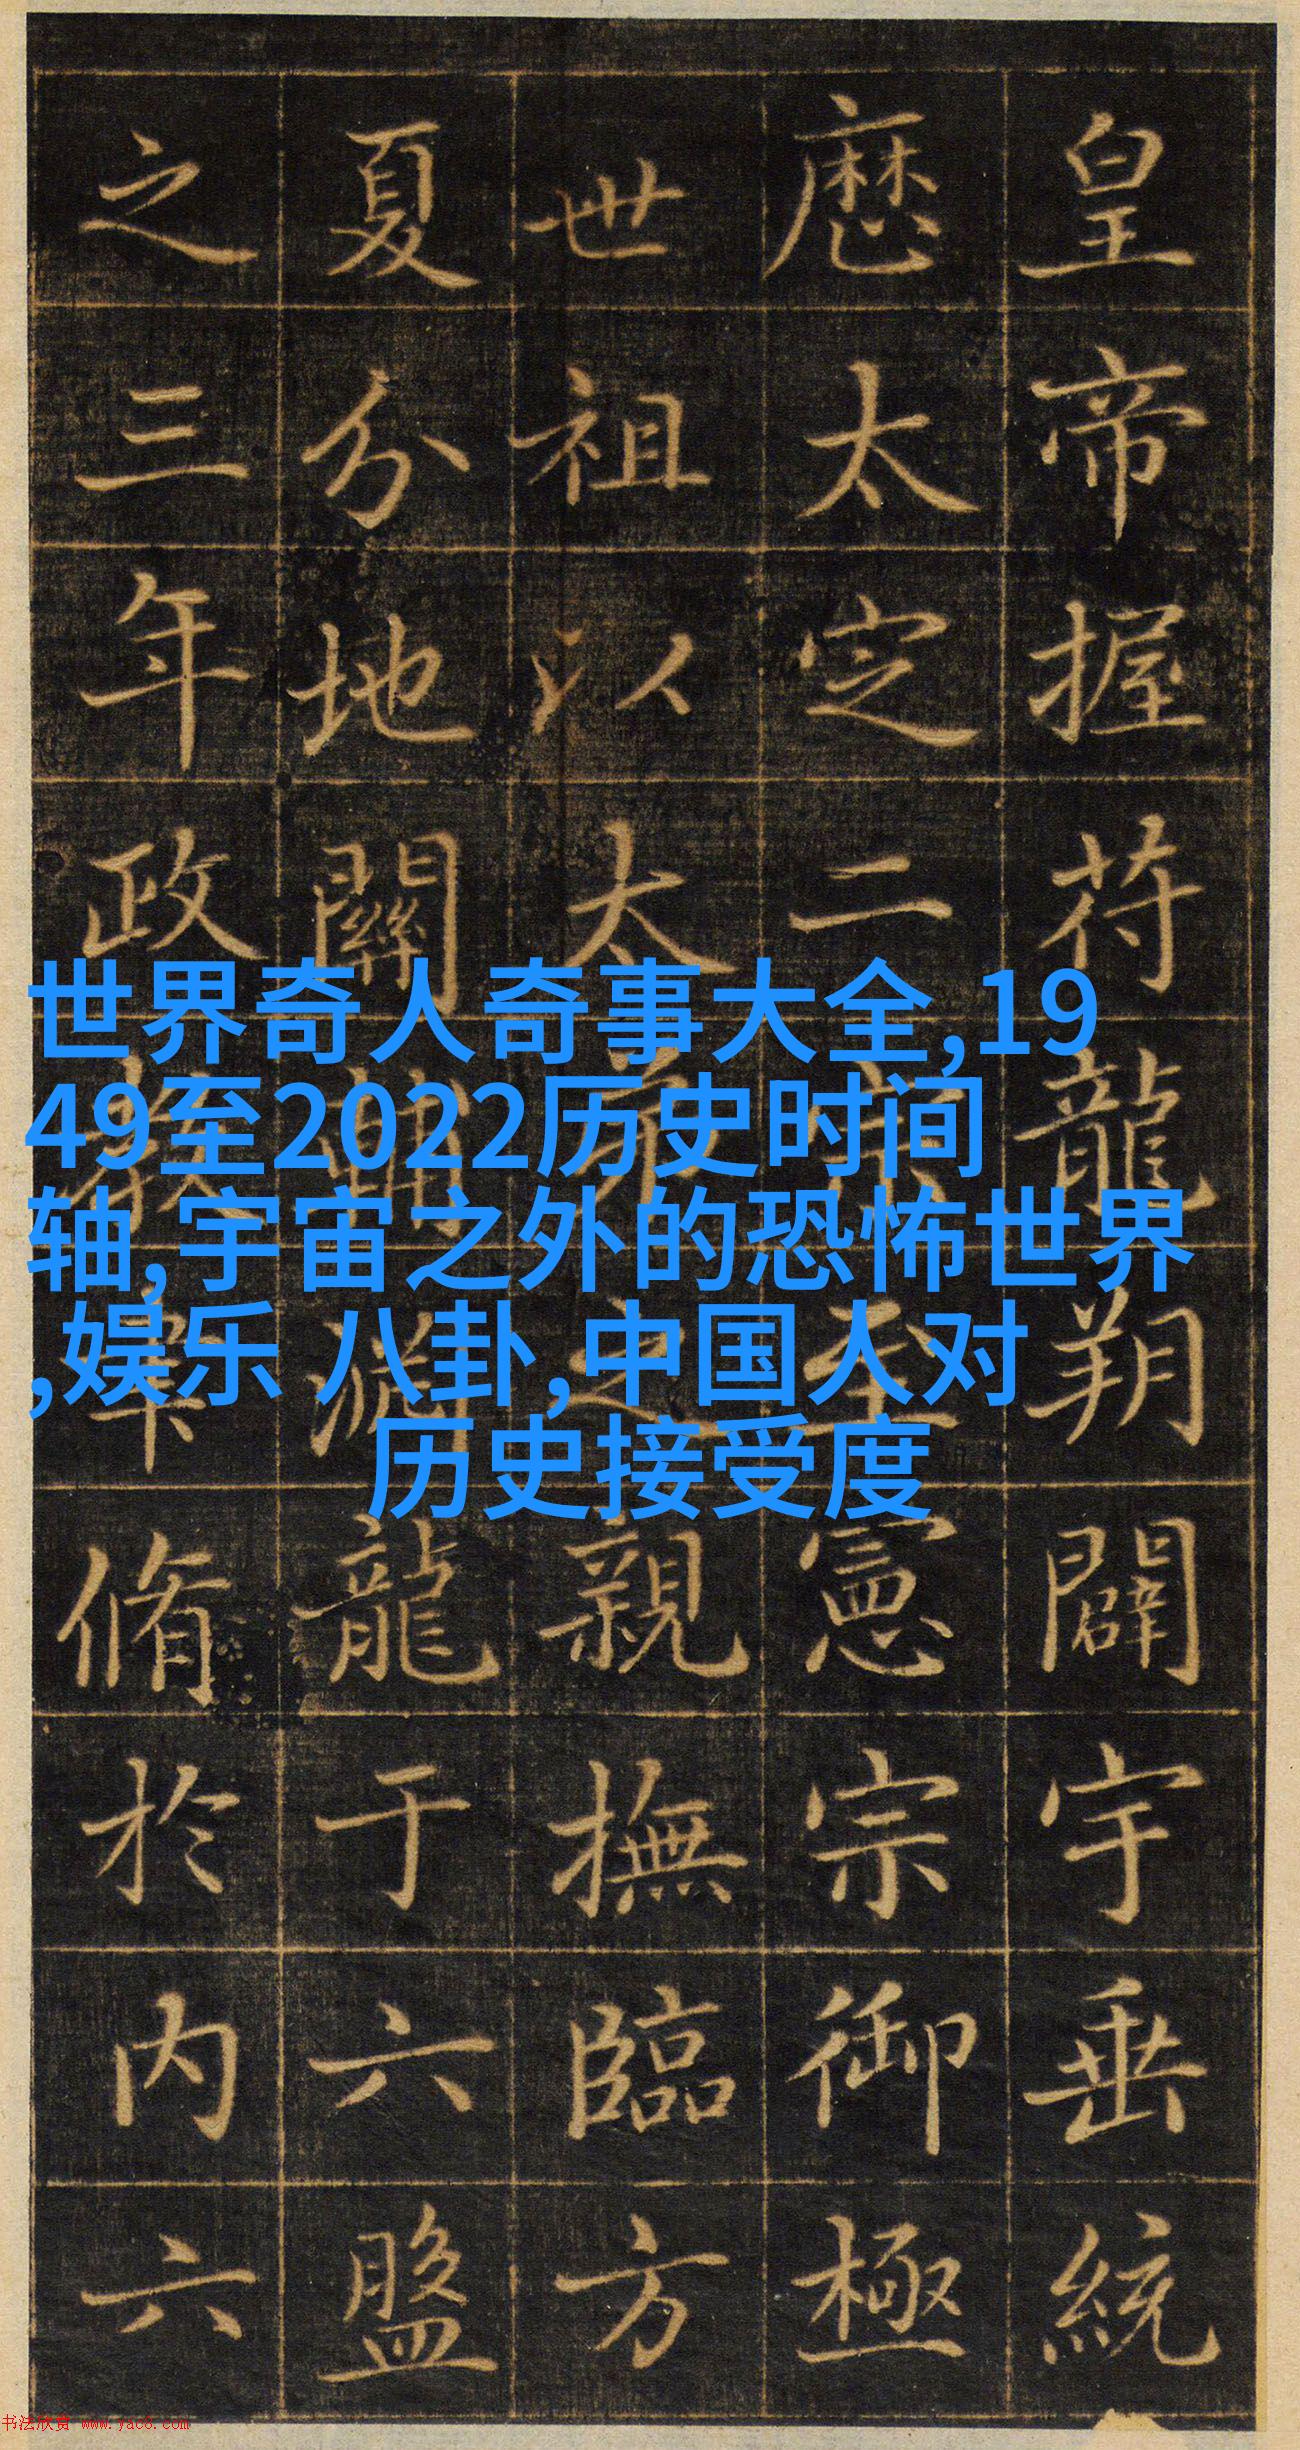 皇帝握符龍朔闢宇垂統
歷太定二宗至憲宗御極
世祖以太弟之親撫臨方
夏分地關輔淵龍于六盤
之三年政教畢脩於內六
世界奇人奇事大全,19
49至2022历史时间
轴,宇宙之外的恐怖世界
,娱乐 八卦,中国人对
历史接受度
书法欣赏 www.yac8.com